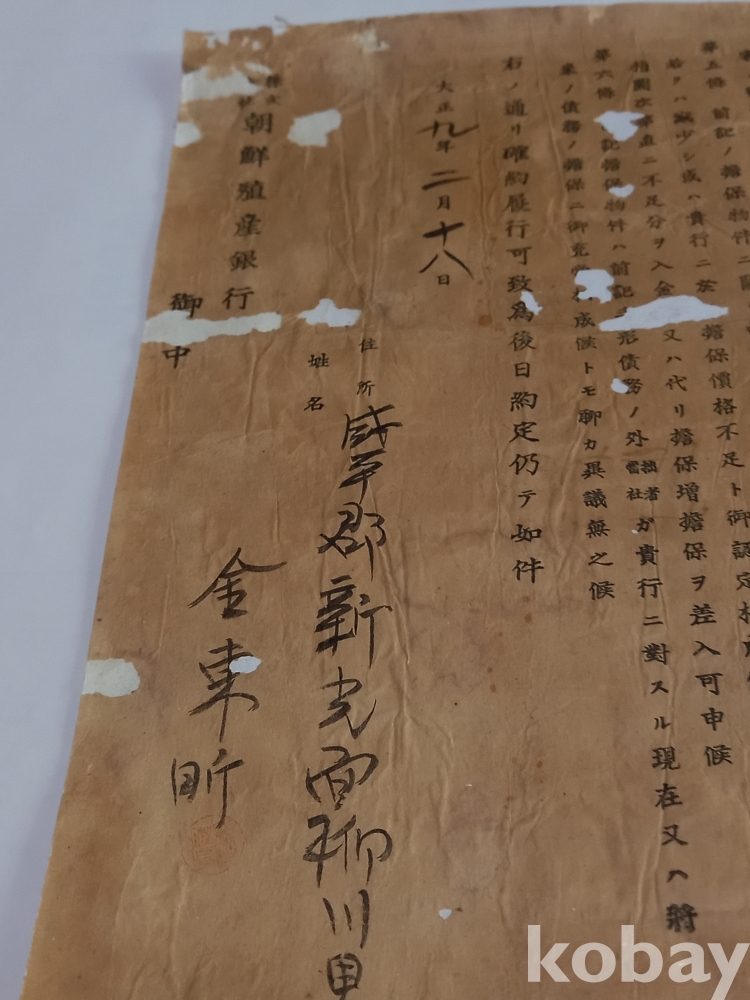 第五條 前記ノ擔保物件ニ
若クハ減少シ或ハ貴行ニ於 擔保價格不足ト御認定
指圖次第直ニ不足分ヲ入金 又ハ代リ擔保增擔保ヲ差入可申候
第六條 記擔保物件ハ前記 形債務ノ外 拙者 當社 ガ貴行ニ對スル現在又ハ將
來ノ債務ノ擔保ニ御充 成候トモ聊カ異議無之候
右ノ通リ確約履行可致爲後日約定仍テ如件
大正九年二月十八日
住所 咸平郡新光面柳川里
姓名 金東昕
株式 朝鮮殖産銀行
御中
kobay